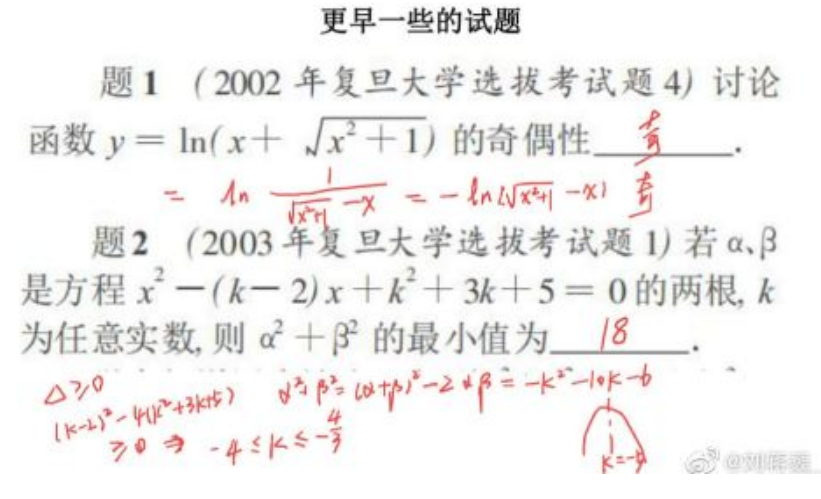 更早一些的试题
题1 (2002年复旦大学选拔考试题4) 讨论
函数 y = ln(x + √(x² + 1)) 的奇偶性 奇 .
= ln 1/(√(x²+1) - x) = - ln(√(x²+1) - x) 奇
题2 (2003年复旦大学选拔考试题1) 若 α、β
是方程 x² - (k - 2)x + k² + 3k + 5 = 0 的两根, k
为任意实数, 则 α² + β² 的最小值为 18 .
Δ≥0 α²+β² = (α+β)² - 2αβ = -k² - 10k - 6
(k-2)² - 4(k²+3k+5)
≥0 ⇒ -4 ≤ k ≤ -4/3
k=-5